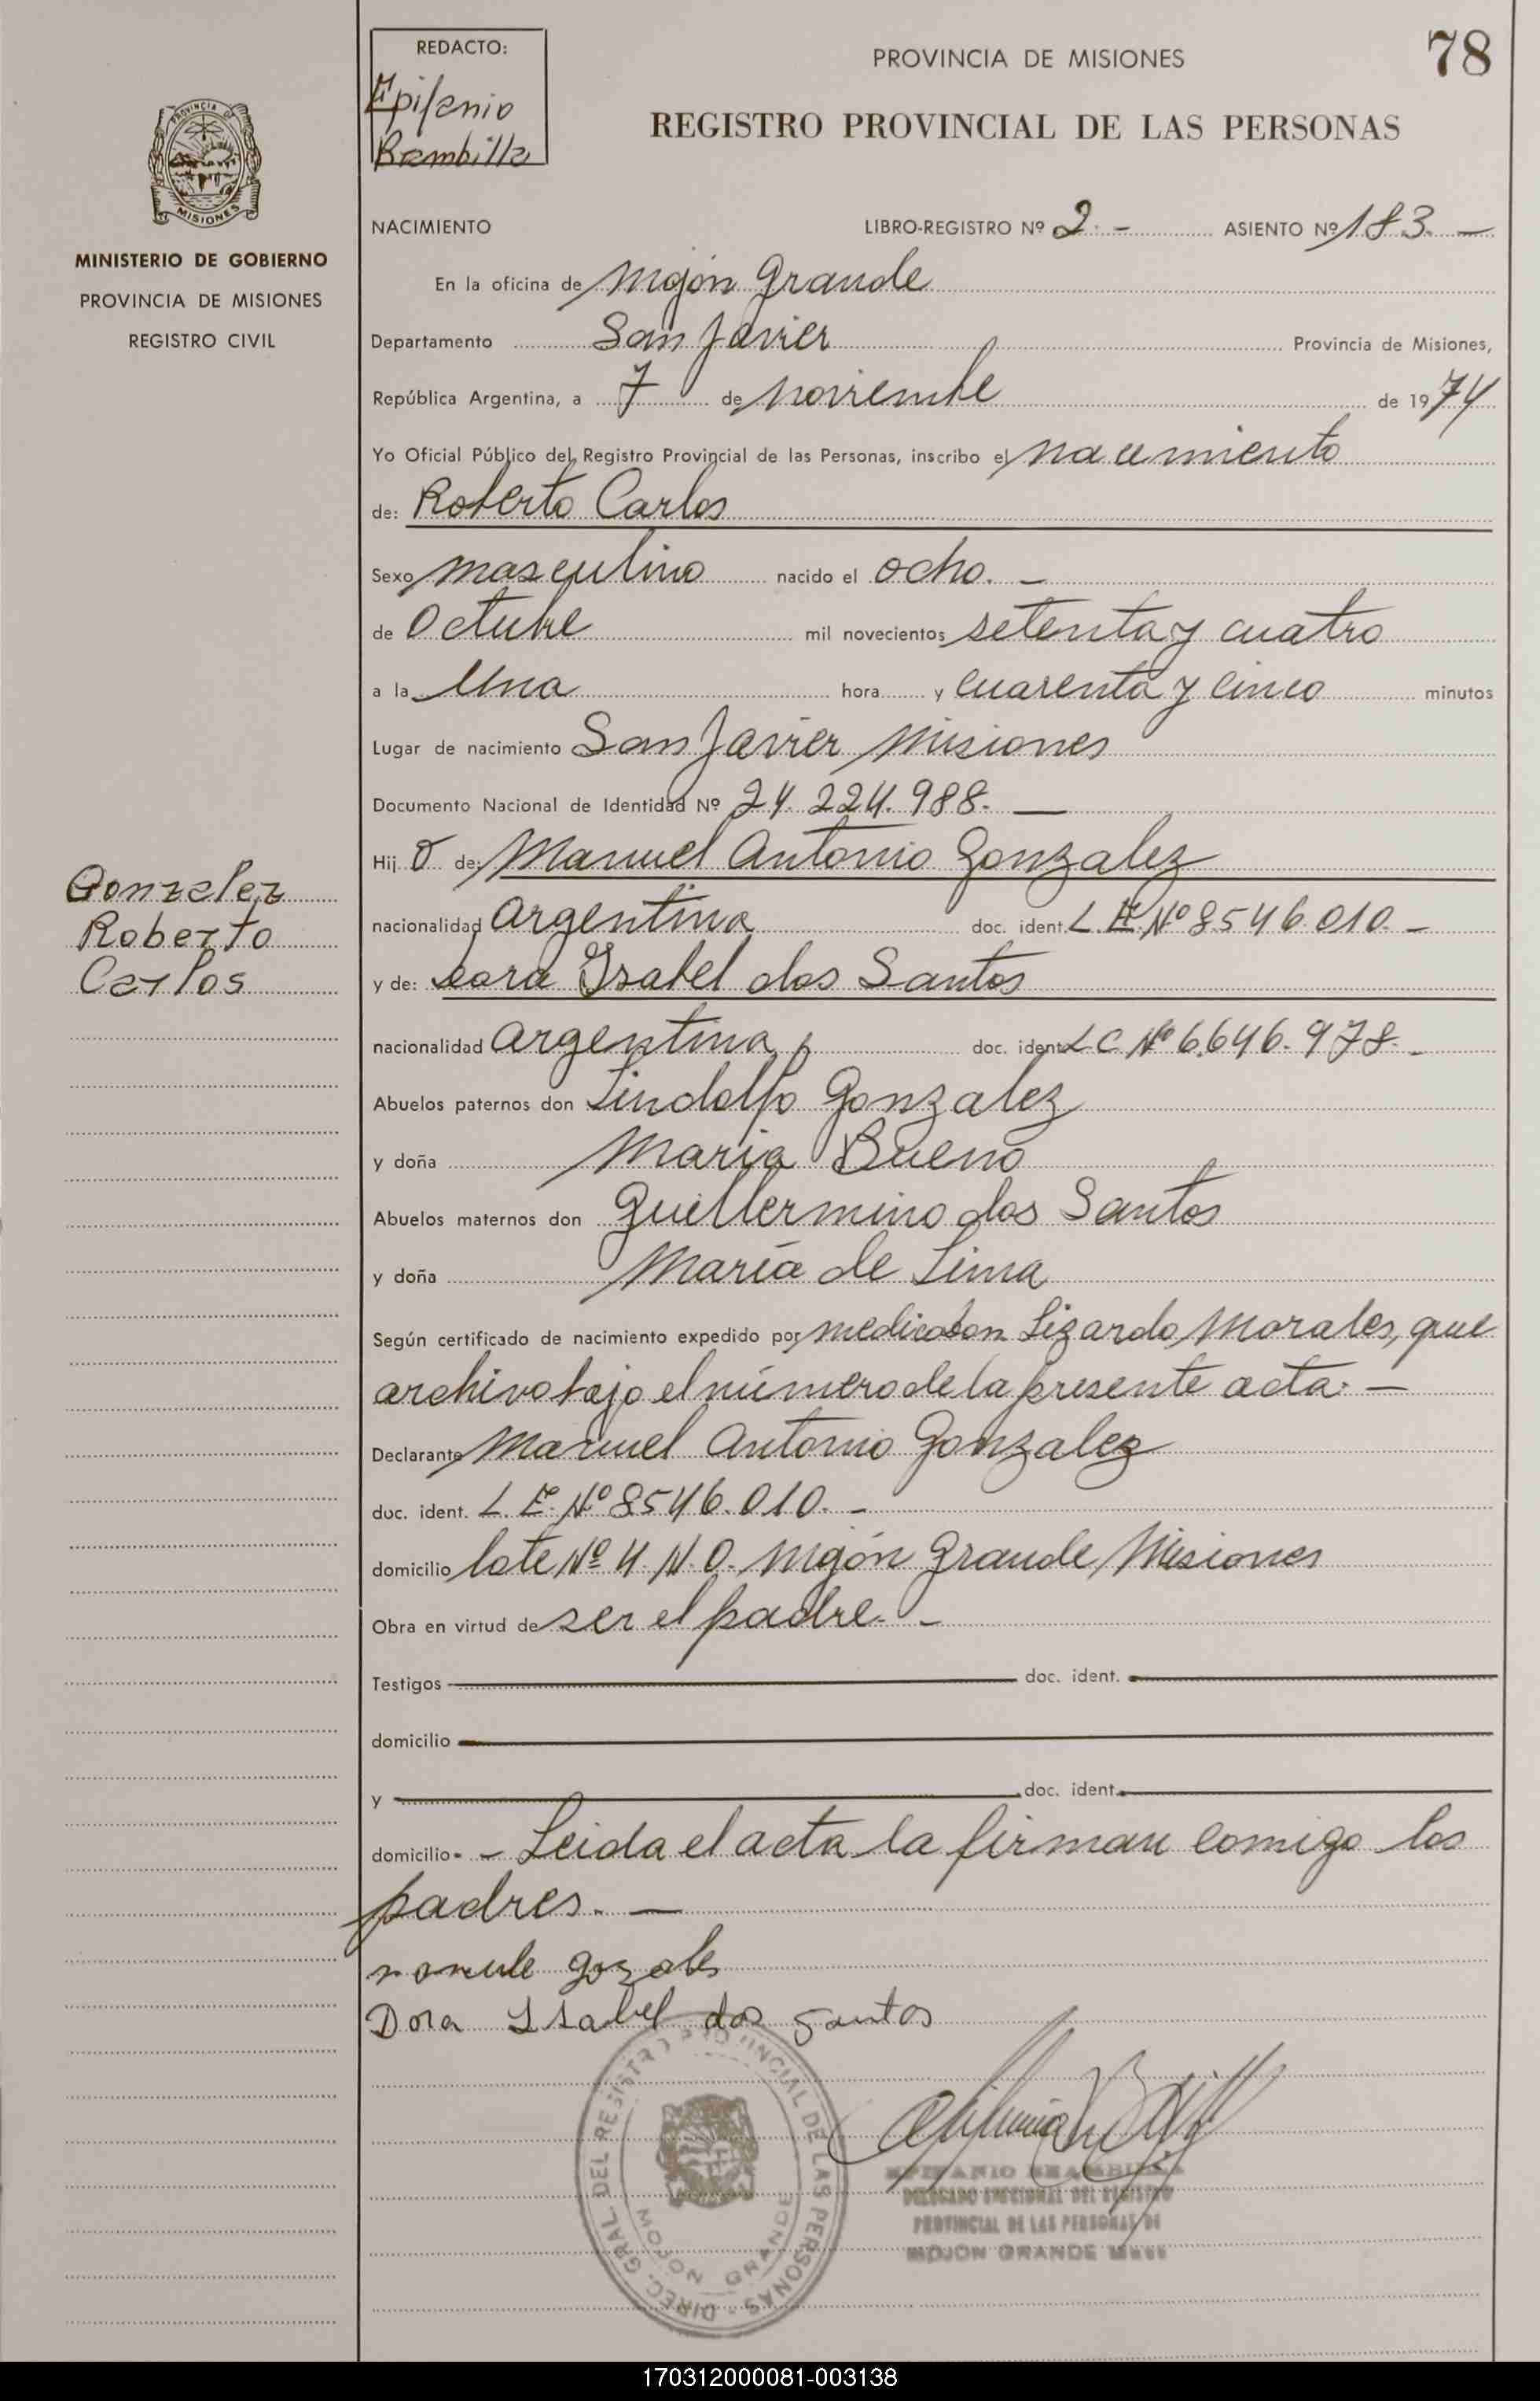 REDACTO:
Epifanio
Brambilla
PROVINCIA DE MISIONES
78
REGISTRO PROVINCIAL DE LAS PERSONAS
PROVINCIA DE
MISIONES
MINISTERIO DE GOBIERNO
PROVINCIA DE MISIONES
REGISTRO CIVIL
NACIMIENTO LIBRO-REGISTRO Nº 2.- ASIENTO Nº 183.-
En la oficina de Mojón Grande
Departamento San Javier Provincia de Misiones,
República Argentina, a 7 de noviembre de 1974
Yo Oficial Público del Registro Provincial de las Personas, inscribo el nacimiento
de: Roberto Carlos
Sexo masculino nacido el ocho.-
de Octubre mil novecientos setenta y cuatro
a la Una hora y cuarenta y cinco minutos
Lugar de nacimiento San Javier Misiones
Documento Nacional de Identidad Nº 24.224.988.-
Hij o de: Manuel Antonio Gonzalez
Gonzalez
Roberto
Carlos
nacionalidad argentina doc. ident. L.E. Nº 8546.010.-
y de: Isabel dos Santos
nacionalidad argentina doc. ident. L C Nº 6.646.978.-
Abuelos paternos don Lindolfo Gonzalez
y doña Maria Bueno
Abuelos maternos don Guillermino dos Santos
y doña María de Lima
Según certificado de nacimiento expedido por medico don Lizardo Morales, que
archivo bajo el número de la presente acta.-
Declarante Manuel Antonio Gonzalez
doc. ident. L.E. Nº 8546.010.-
domicilio lote Nº 4 N.O. Mojón Grande Misiones
Obra en virtud de ser el padre.-
Testigos doc. ident.
domicilio
y doc. ident.
domicilio - Leida el acta la firman comigo los
padres.-
manule gozales
Dora Isabel dos Santos
DIREC. GRAL DEL REGISTRO PROVINCIAL DE LAS PERSONAS
MOJON GRANDE
EPIFANIO BRAMBILLA
DELEGADO SECCIONAL DEL REGISTRO
PROVINCIAL DE LAS PERSONAS DE
MOJON GRANDE Mnes
170312000081-003138